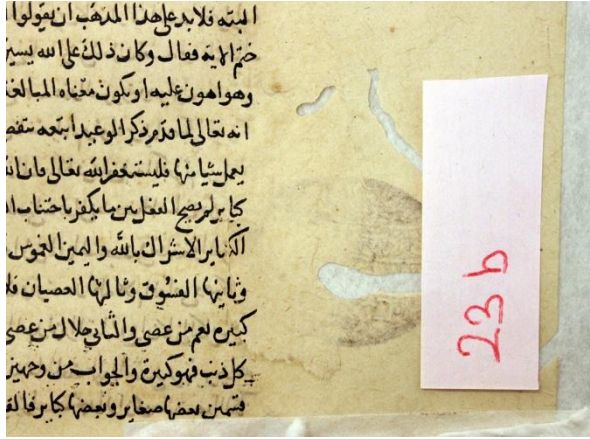 البته فلا بد على هذا المذهب ان يقولوا
ختم الاية فقال وكان ذلك على الله يسير
وهو اهون عليه او يكون معناه المبالغة
انه تعالى لما قدم ذكر الوعيد اتبعه بتفصـ
يعمل شيا منها فليستغفر الله تعالى فان الـ
كباير لم يصح الفصل بين ما يكفر باجتناب ا
الكباير الاشراك بالله واليمين الغموس
وثانيها الفسوق وثالثها العصيان فلا
كبيرة لعم من عصى والثاني خلال من عصى
كل ذنب فهو كبيرة والجواب من وجهين
قسمين بعضها صغاير وبعضها كباير فالقـ
23 b